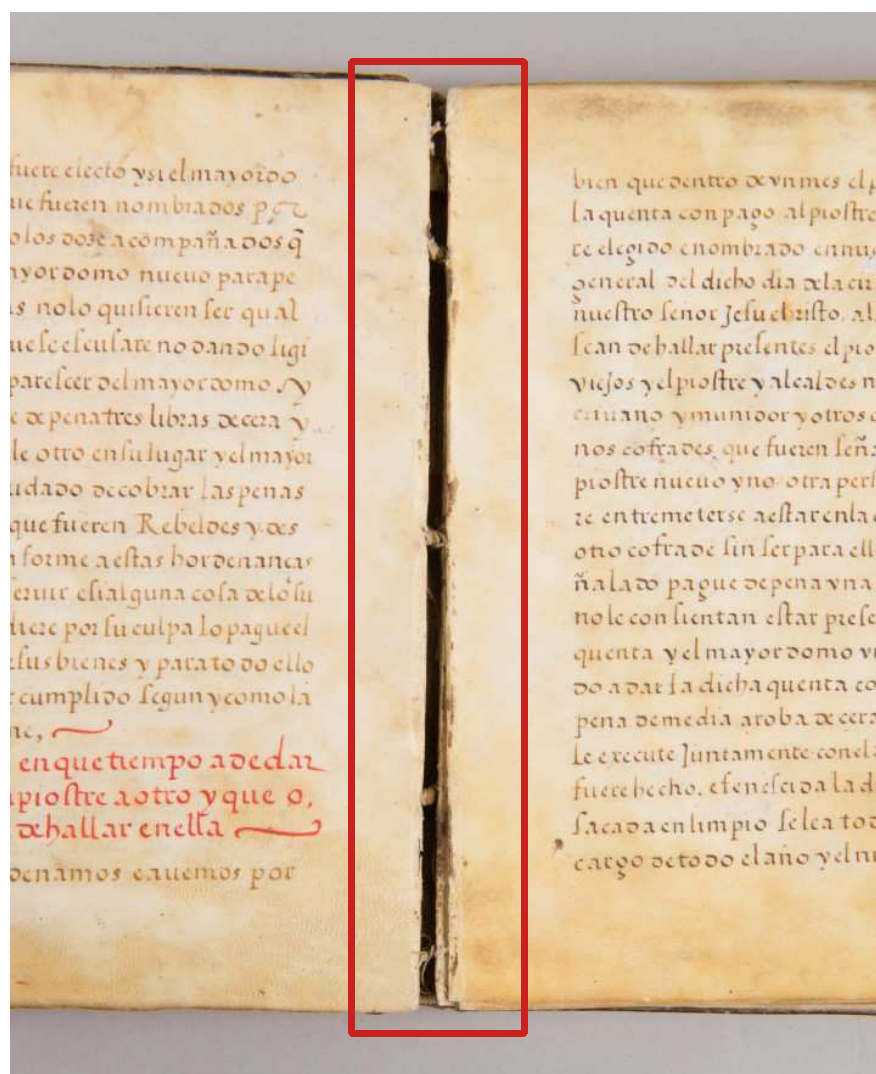 fuere electo ysi el mayordo
ue fueren nombrados
olos dose acompañados q̃
ayordomo nueuo para pe
s nolo quisieren ser qual
ue se escusare no dando ligi
parescer del mayordomo y
e de pena tres libras de cera y
le otro en su lugar y el mayor
uidado de cobrar las penas
que fueren Rebeldes y des
forme a estas hordenancas
seruir esi alguna cosa de lo su
diere por su culpa lo pague el
sus bienes y para todo ello
cumplido segun y como la
ne,
en que tiempo a de dar
piostre a otro y que o,
de hallar en ella
denamos e auemos por
bien que dentro de vn mes el p
la quenta con pago al piostre
re elegido e nombrado en nu
general del dicho dia de la cir
nuestro señor Jesu christo. al
sean de hallar presentes el pio
viejos y el piostre y alcaldes n
criuano y munidor y otros
nos cofrades que fueren seña
piostre nueuo y no otra pers
re entremeterse a estar en la
otro cofrade sin ser para ell
ñalado pague de pena vna
no le consientan estar prese
quenta y el mayordomo vi
do a dar la dicha quenta co
pena de media aroba de cera
le execute Juntamente con el
fuere hecho. e fenescida la d
sacada en limpio se lea tod
cargo de todo el año y el nu